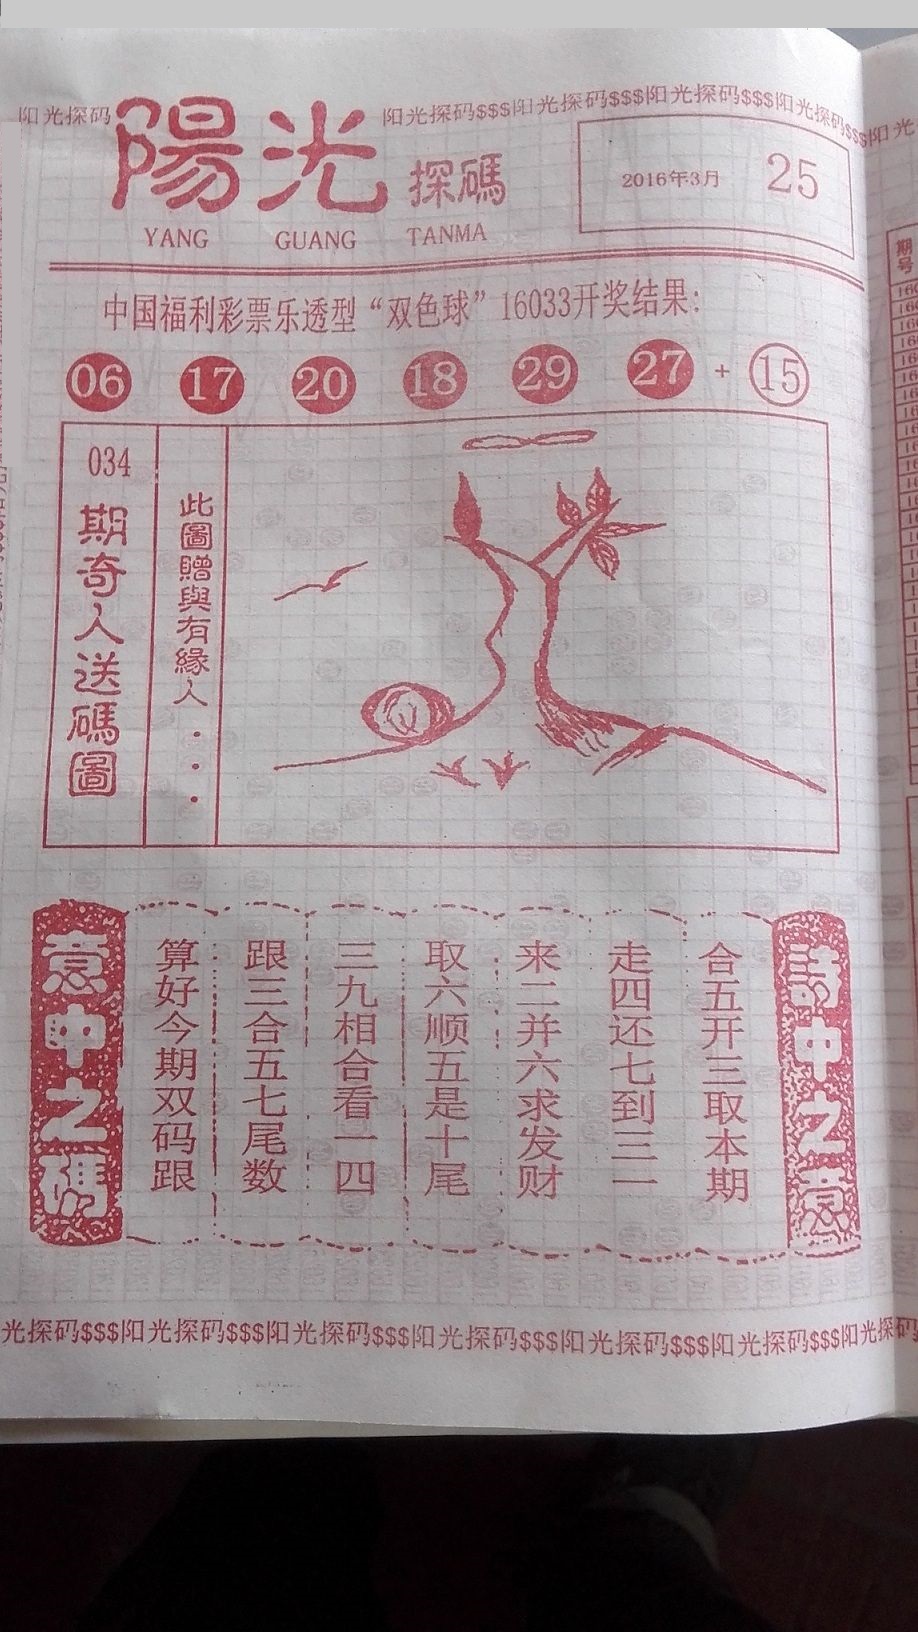 阳光探码
陽光探碼
阳光探码$$$阳光探码$$$阳光探码$$$阳光探码$$$阳光
YANG GUANG TANMA
2016年3月 25
中国福利彩票乐透型“双色球”16033开奖结果:
06 17 20 18 29 27 + 15
034期奇人送碼圖
此圖贈與有緣人...
詩中之意
合五开三取本期
走四还七到三一
来二并六求发财
取六顺五是十尾
三九相合看一四
跟三合五七尾数
算好今期双码跟
意中之碼
光探码$$$阳光探码$$$阳光探码$$$阳光探码$$$阳光探码$$$阳光探码$$$阳光探码
期号